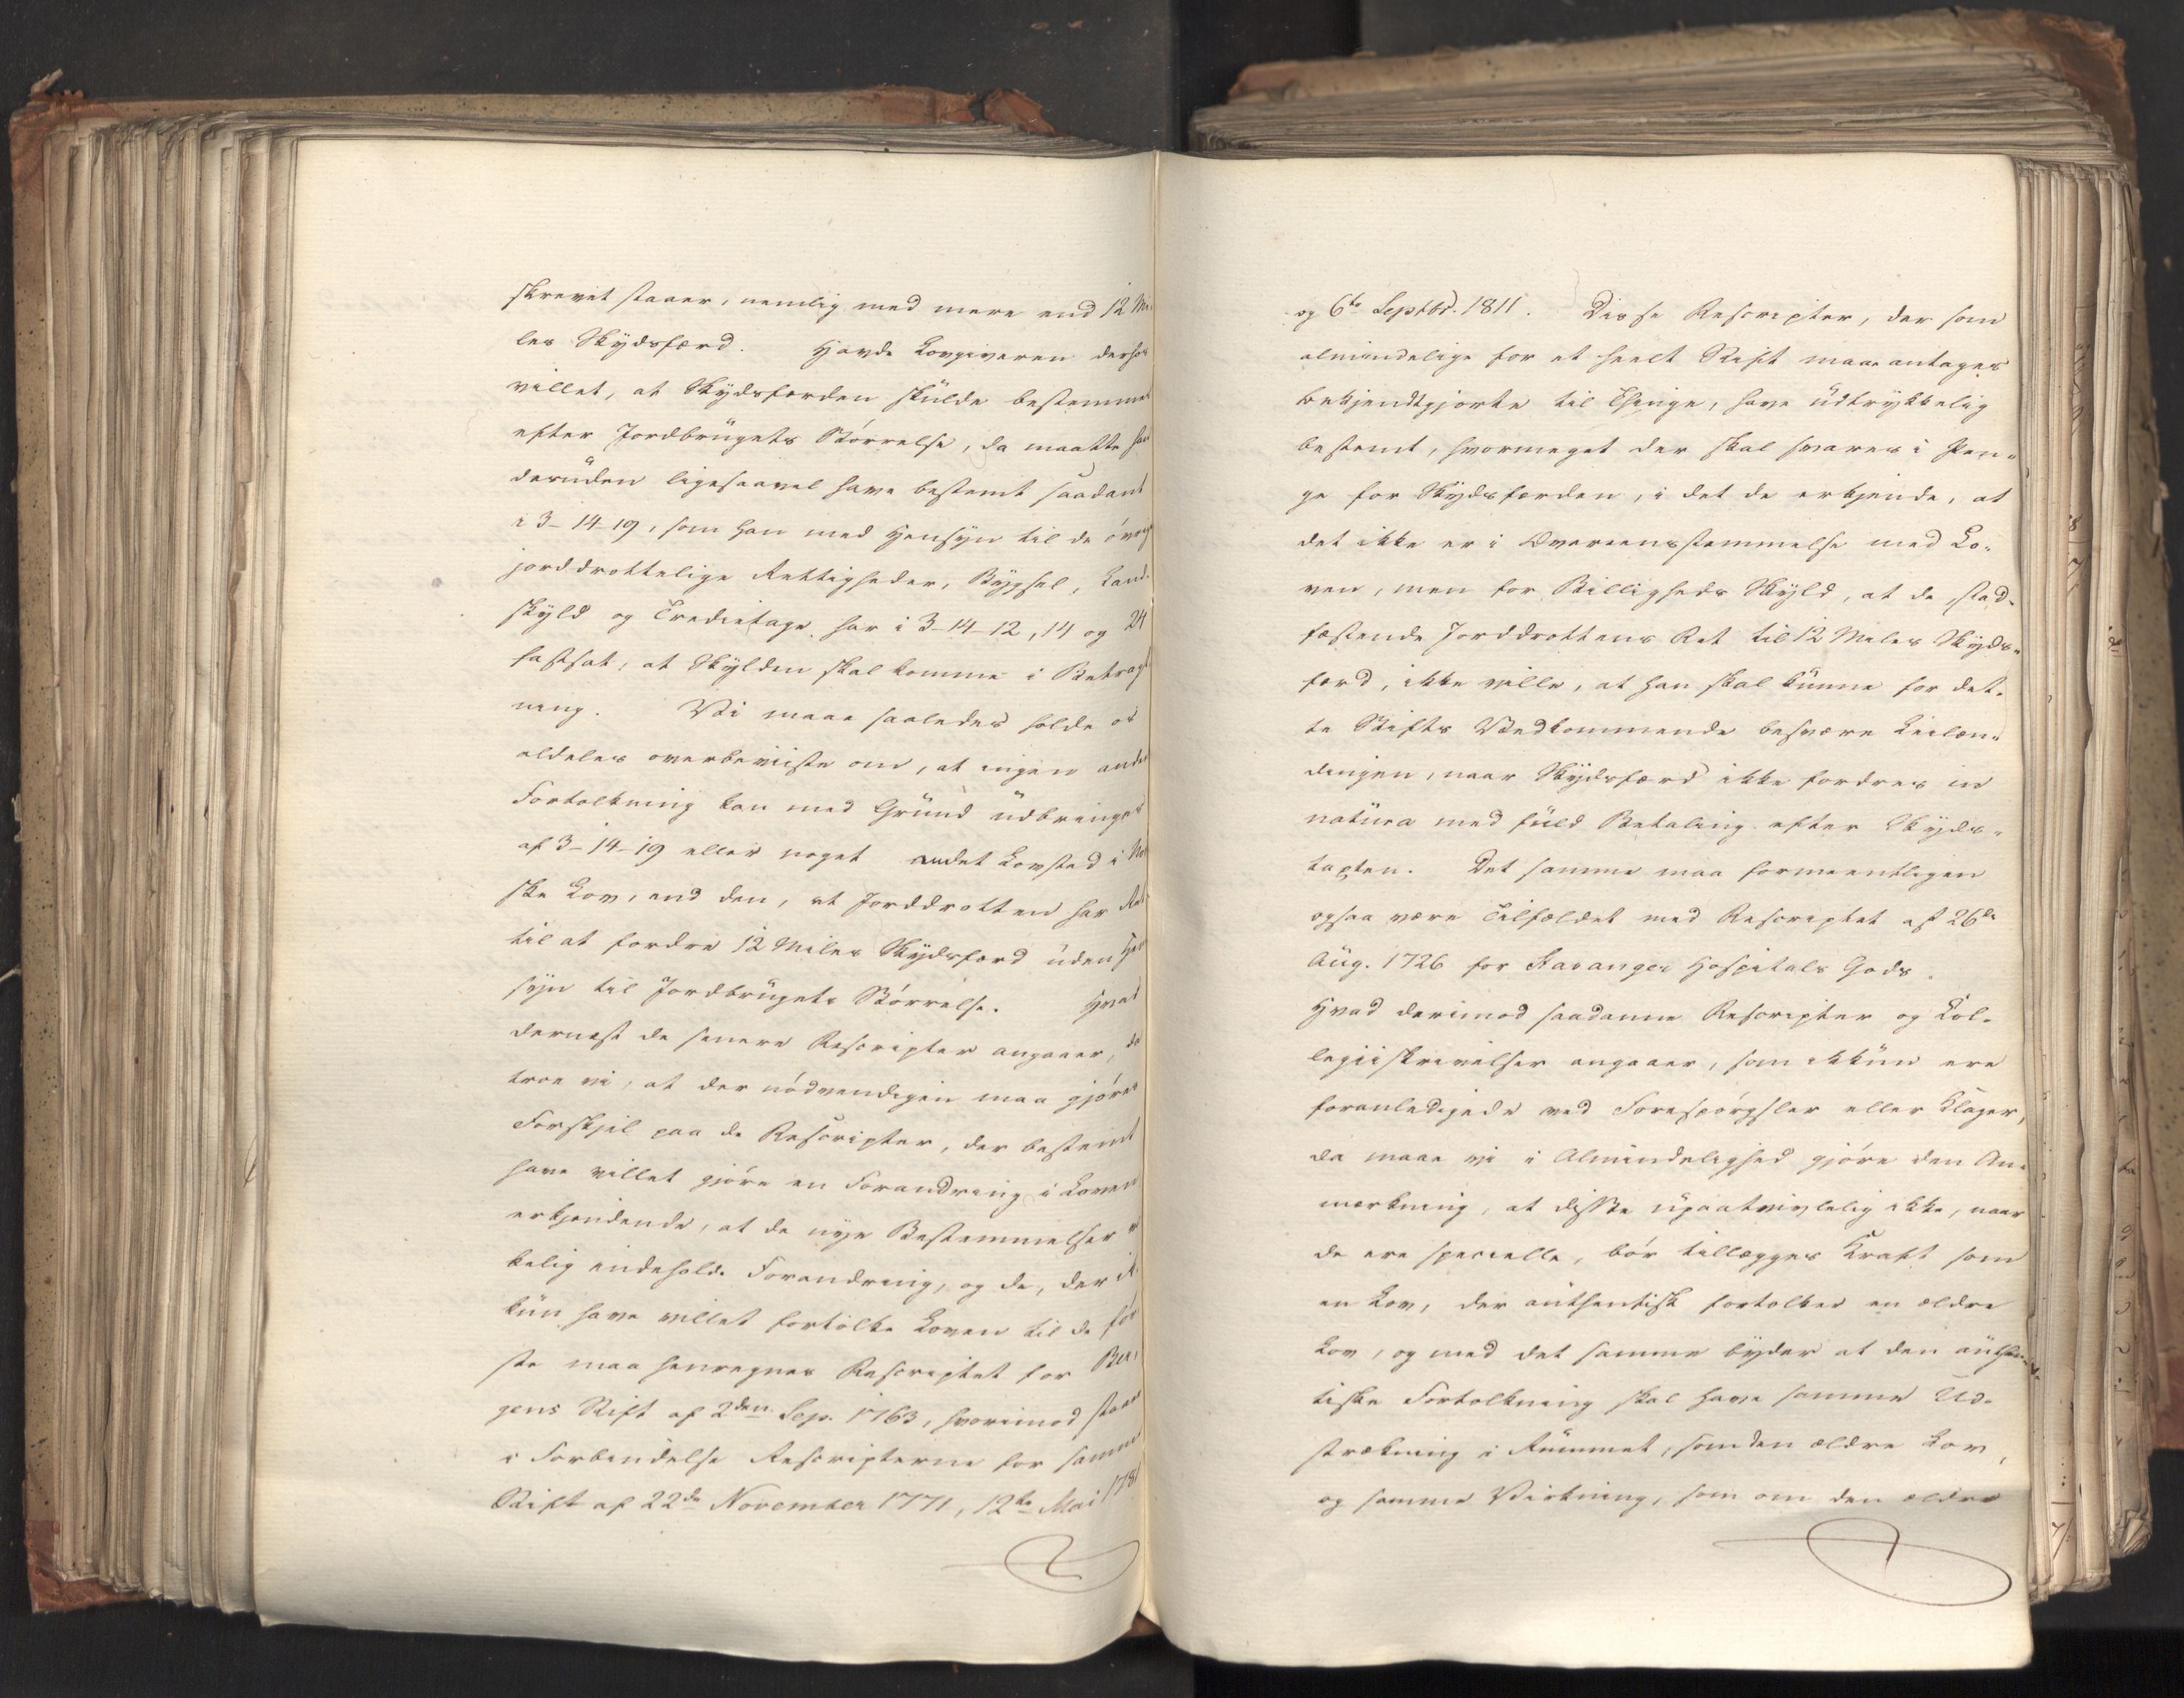 skrevet staaer, nemlig med mere end 12 Mi-
les Skydsfærd. Havde Lovgiveren derfor
villet, at Skydsfærden skulde bestemmes
efter Jordbrugets Størrelse, da maatte han
desuden ligesaavel have bestemt saadant
i 3-14-19, som han med Hensyn til de øvrige
jorddrottelige Rettigheder, Bygsel, Land-
skyld og Tredietage har i 3-14-12, 14 og 24
fastsat, at Skylden skal komme i Betragt
ning. Vi maae saaledes holde os
aldeles overbeviiste om, at ingen anden
Fortolkning kan med Grund udbringes
af 3-14-19 eller noget andet Lovsted i Nor
ske Lov, end den, at Jorddrotten har Ret
til at fordre 12 Miles Skydsfærd uden Hen
syn til Jordbrugets Størrelse. Hvad
dernæst de senere Rescripter angaaer, da
troe vi, at der nødvendigen maa gjøres
Forskjel paa de Rescripter, der bestemt
have villet gjøre en Forandring i Loven
erkjendende, at de nye Bestemmelser
kelig indeholde Forandring, og de, der
kun have villet fortolke Loven til de før
ste maa henregnes Rescriptet for Ber-
gens Stift af 2den Sep. 1763, hvorimod staae
i Forbindelse Rescripterne for samme
Stift af 22de November 1771, 12te Mai 1781
og 6te Septbr. 1811. Disse Rescripter, der som
almindelige for et heelt Stift maae antages
bekjendtgjorte til Thinge, have udtrykkelig
bestemt, hvormeget der skal svares i Pen-
ge for Skydsfærden, i det de erkjende, at
det ikke er i Overeensstemmelse med Lo-
ven, men for Billigheds Skyld, at de, stad-
fæstende Jorddrottens Ret til 12 Miles Skyds-
færd, ikke ville, at han skal kunne for det-
te Stifts Vedkommende besvære Leilæn-
dingen, naar Skydsfærd ikke fordres in
natura med fuld Betaling efter Skyds-
taxten. Det samme maa formeentligen
ogsaa være Tilfældet med Rescriptet af 26de
Aug. 1726 for Stavanger Hospitals Gods.
Hvad derimod saadanne Rescripter og Col-
legiiskrivelser angaaer, som ikkun ere
foranledigede ved Forespørgsler eller Klager,
da maae vi i Almindelighed gjøre den An-
mærkning, at disse upaatvivlelig ikke, naar
de ere specielle, bør tillægges Kraft som
en Lov, der authentisk fortolker en ældre
Lov, og med det samme byder at den authen-
tiske Fortolkning skal have samme Ud-
strækning i Rummet, som den ældre Lov,
og samme Virkning, som om den ældre